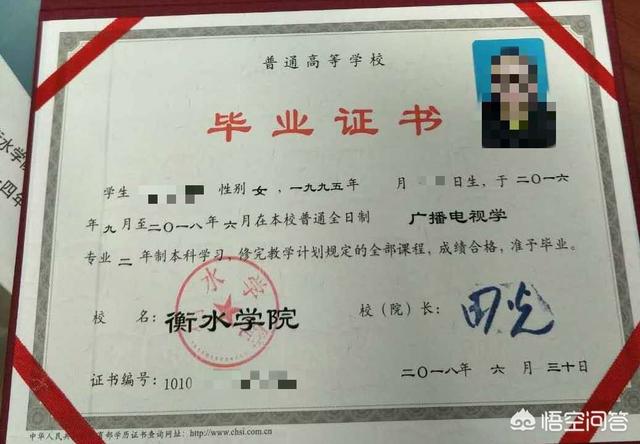 普通高等学校
毕业证书
学生 性别 女，一九九五年 月 日生，于二〇一六
年九月至二〇一八年六月在本校普通全日制 广播电视学
专业 二 年制本科学习，修完教学计划规定的全部课程，成绩合格，准予毕业。
水学
校 名： 衡水学院 校（院）长： 田光
证书编号： 1010 二〇一八年 六月 三十日
中华人民共 育部学历证书查询网址：http://www.chsi.com.cn
衡水学院
四年
悟空问答